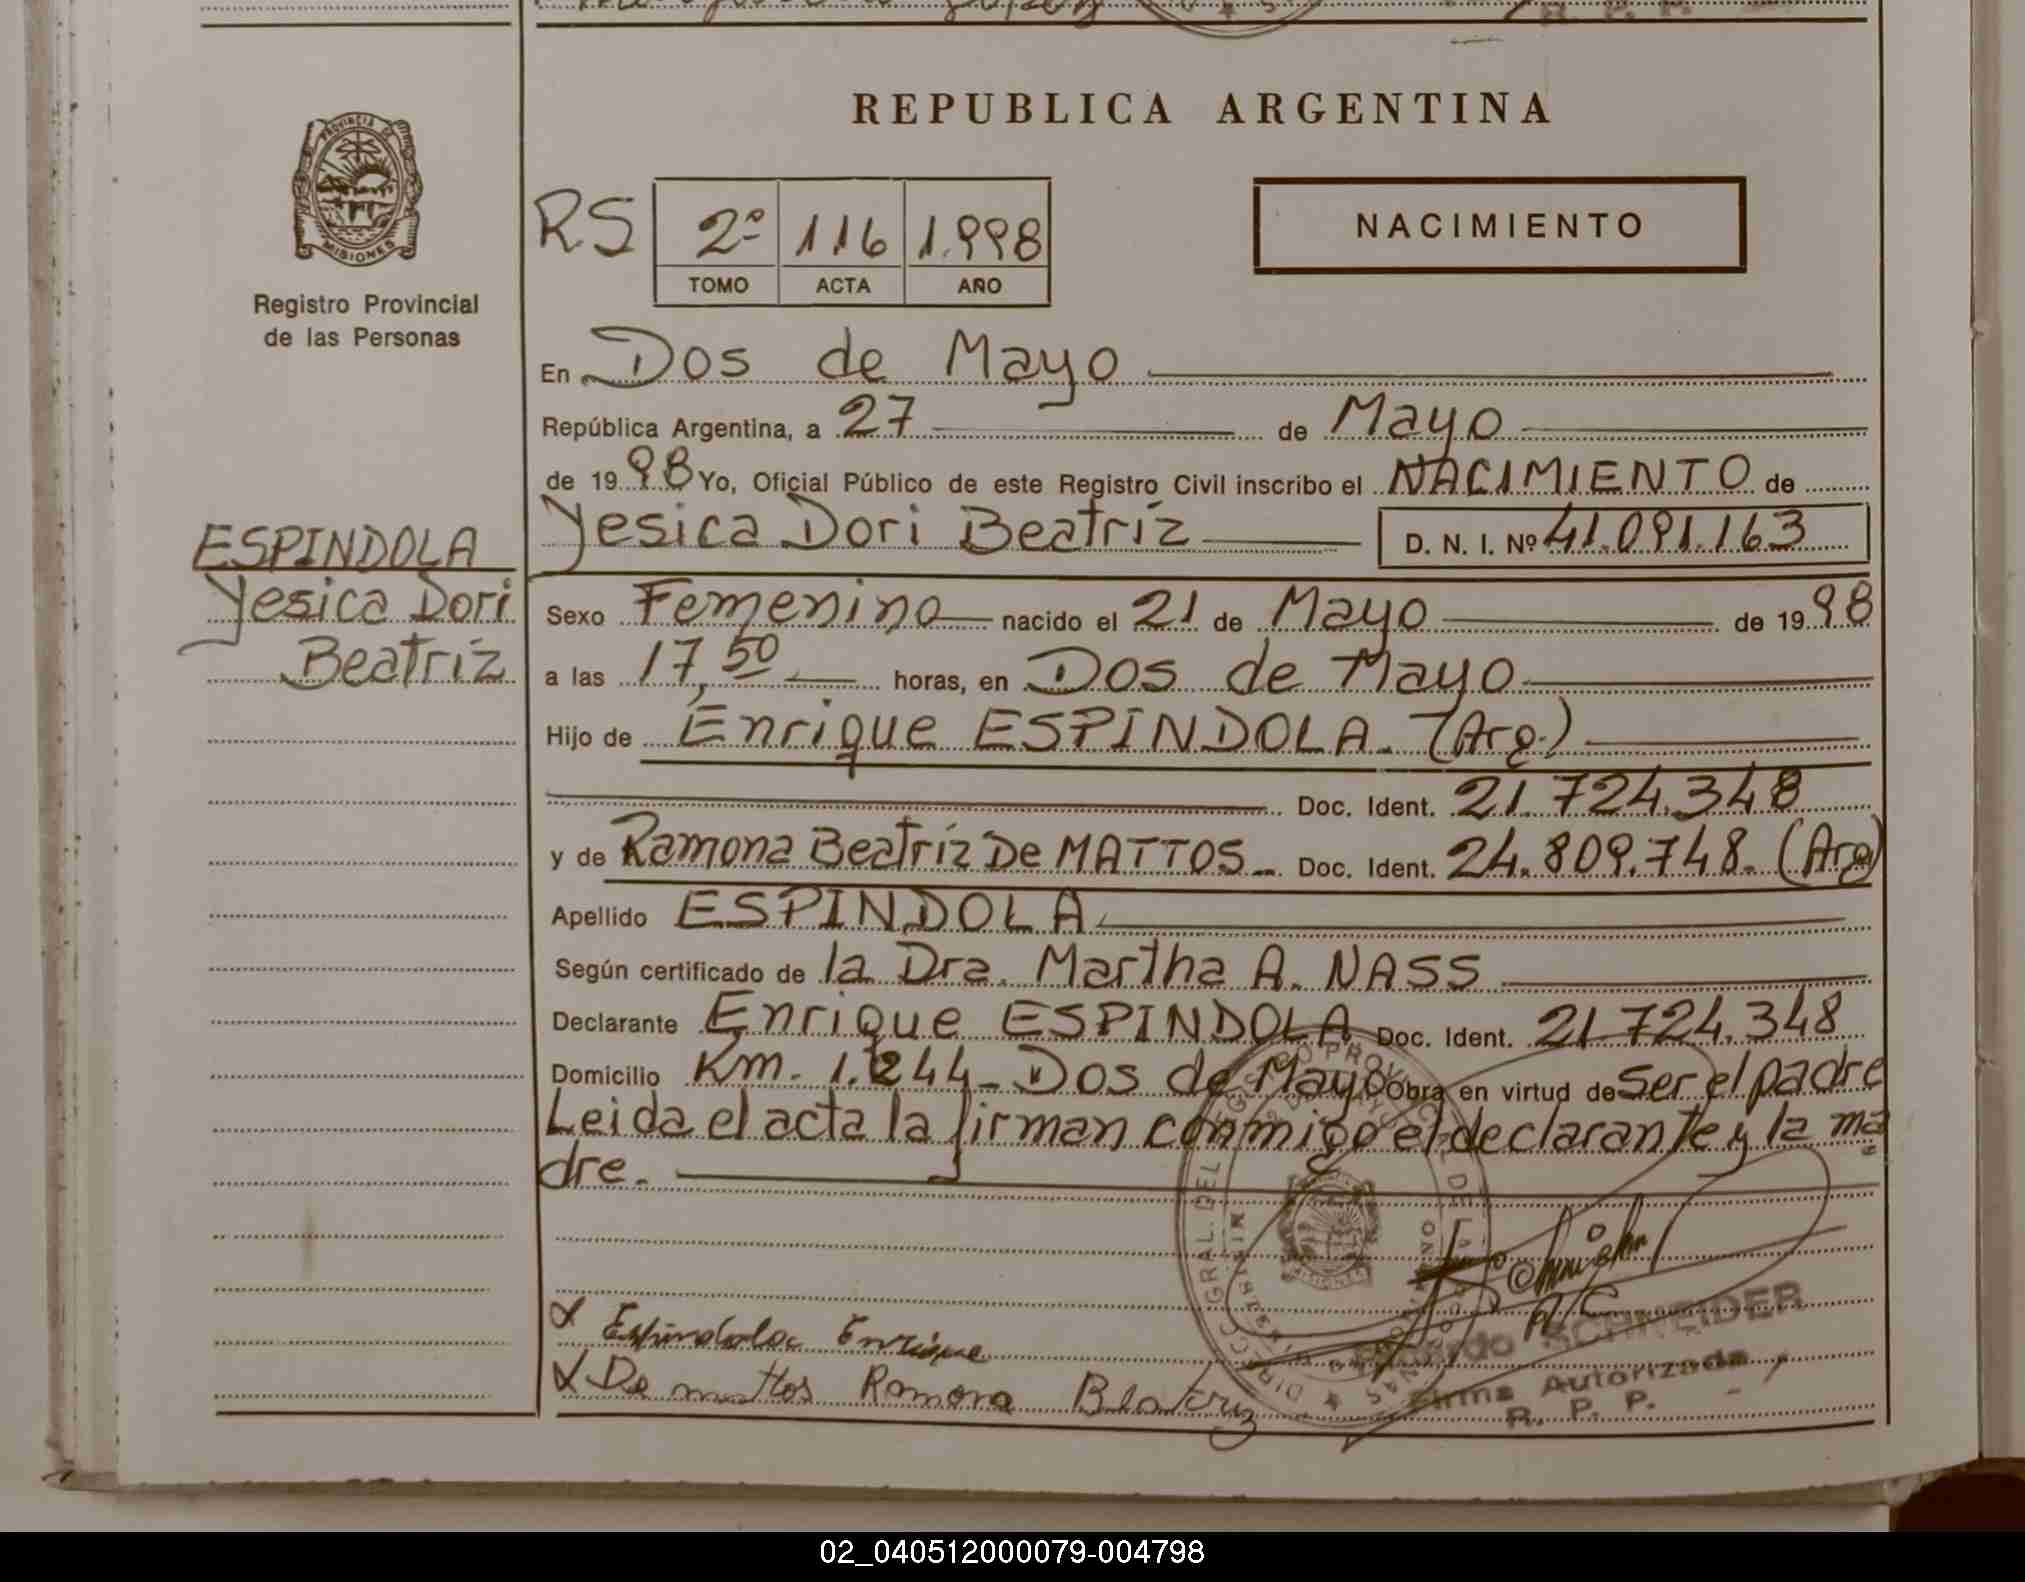 REPUBLICA ARGENTINA
PROVINCIA DE
MISIONES
Registro Provincial
de las Personas
RS
2º 116 1.998
TOMO ACTA AÑO
NACIMIENTO
En Dos de Mayo
República Argentina, a 27 de Mayo
de 1998 Yo, Oficial Público de este Registro Civil inscribo el NACIMIENTO de
Yesica Dori Beatriz D. N. I. Nº 41.091.163
ESPINDOLA
Yesica Dori
Beatriz
Sexo Femenino nacido el 21 de Mayo de 1998
a las 17,50 horas, en Dos de Mayo
Hijo de Enrique ESPINDOLA. (Arg.)
Doc. Ident. 21.724.348
y de Ramona Beatriz De MATTOS Doc. Ident. 24.809.748. (Arg)
Apellido ESPINDOLA
Según certificado de la Dra. Martha A. NASS
Declarante Enrique ESPINDOLA Doc. Ident. 21724.348
Domicilio Km. 1.244 Dos de Mayo Obra en virtud de ser el padre
Leida el acta la firman conmigo el declarante y la ma
dre.
Espindola Enrique
De mattos Ramona Beatriz
SCHNEIDER
Firma Autorizada
R. P. P.
02_040512000079-004798